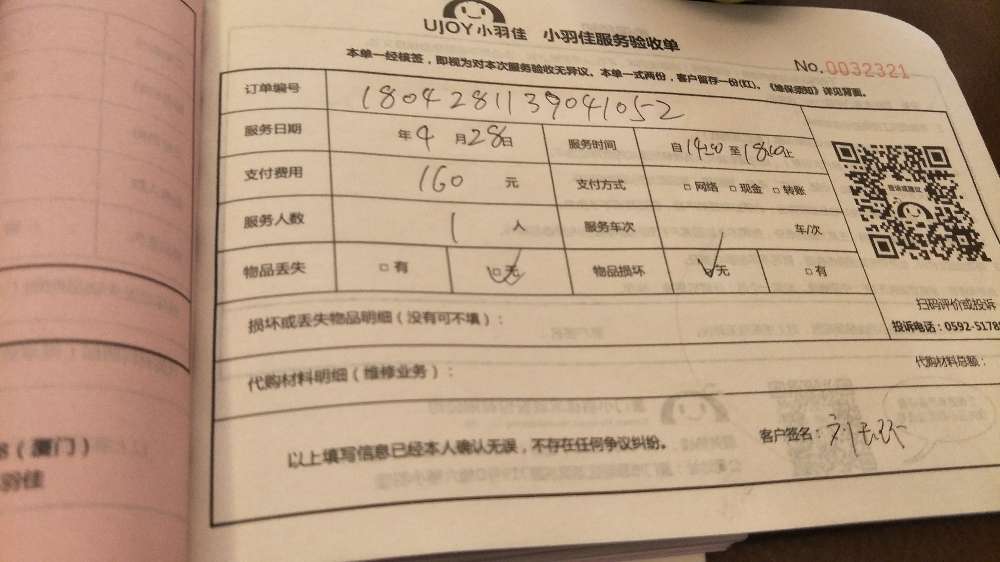 UJOY小羽佳 小羽佳服务验收单
No.0032321
本单一经核签，即视为对本次服务验收无异议。本单一式两份，客户留存一份(红)。《维保须知》详见背面。
订单编号 1804281139041052
服务日期 年4月28日 服务时间 自14:00至18:00止
支付费用 160 元 支付方式 □网络 □现金 □转账
服务人数 1 人 服务车次 车/次
物品丢失 □有 □无 物品损坏 □无 □有
扫码评价或投诉
损坏或丢失物品明细（没有可不填）：
投诉电话：0592-5178
代购材料明细（维修业务）：
代购材料总额：
以上填写信息已经本人确认无误，不存在任何争议纠纷。
客户签名：
（厦门）
羽佳